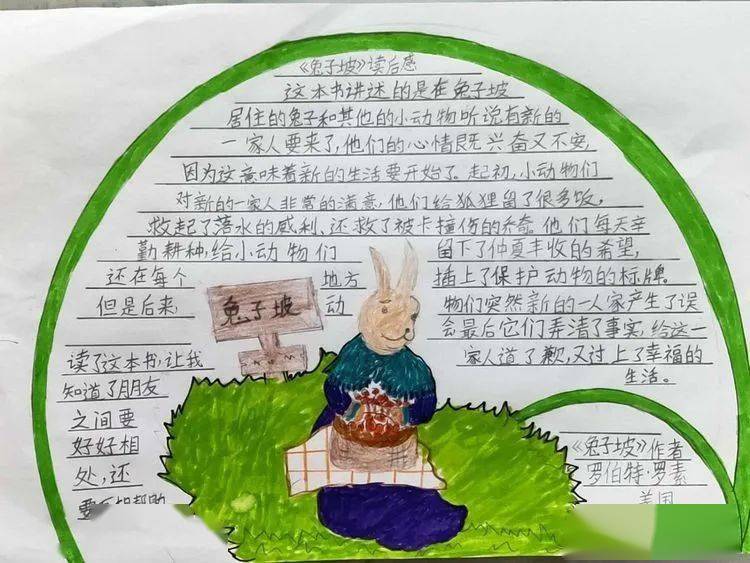 《兔子坡》读后感
这本书讲述的是在兔子坡
居住的兔子和其他的小动物听说有新的
一家人要来了,他们的心情既兴奋又不安,
因为这意味着新的生活要开始了。起初,小动物们
对新的一家人非常的满意,他们给狐狸留了很多饭,
救起了落水的威利、还救了被卡撞伤的乔奇。他们每天辛
勤耕种,给小动物们 留下了仲夏丰收的希望,
还在每个 地方 插上了保护动物的标牌。
但是后来, 动 物们突然新的一人家产生了误
会最后它们弄清了事实,给这一
家人道了歉,又过上了幸福的
生活。
兔子坡
读了这本书,让我
知道了朋友
之间要
好好相
处,还
《兔子坡》作者
罗伯特·罗素
美国